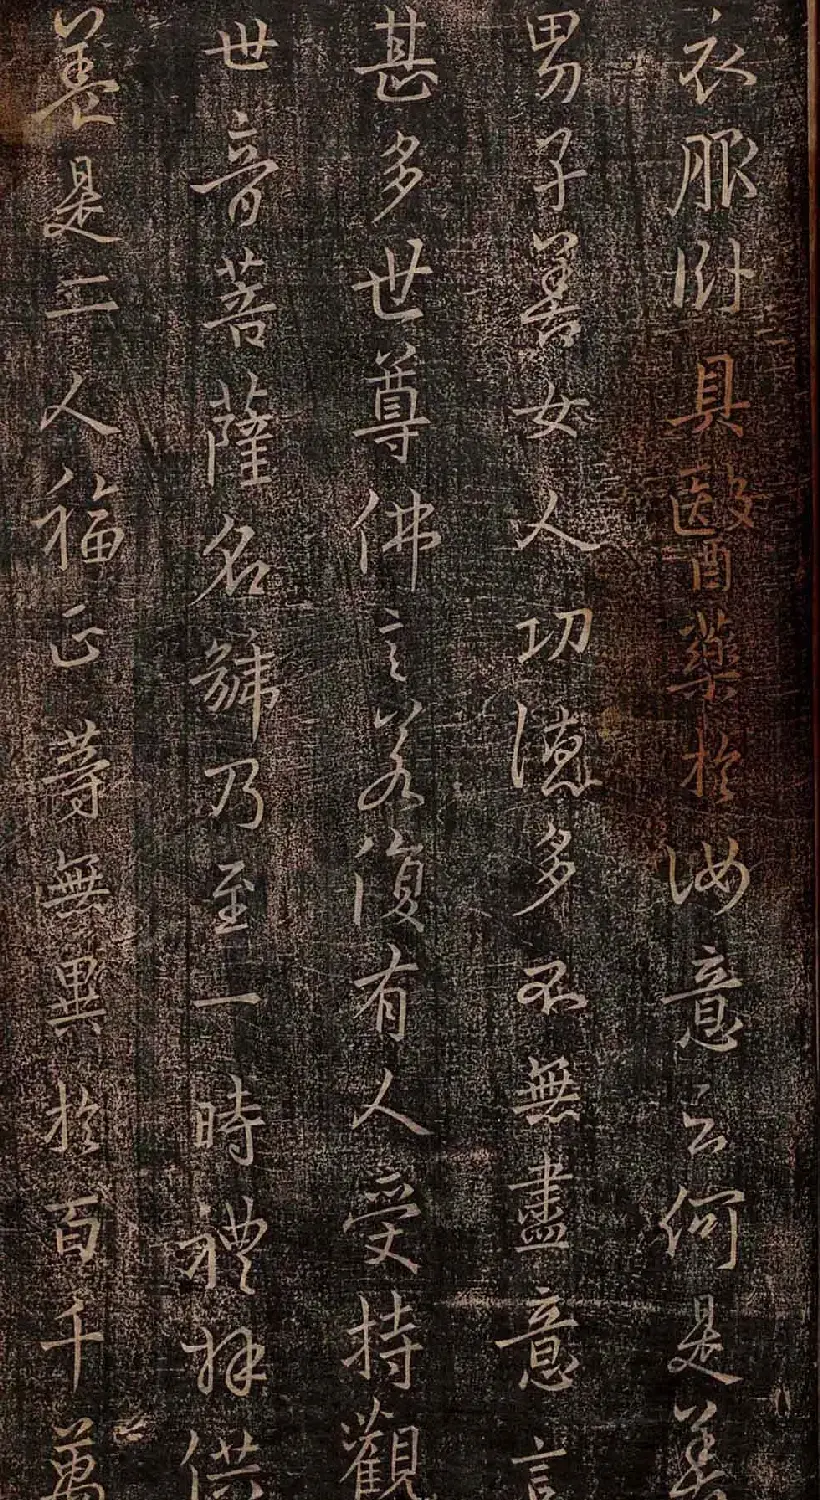 衣服卧具醫藥於汝意云何是善
男子善女人功德多不無盡意言
甚多世尊佛言若復有人受持觀
世音菩薩名號乃至一時禮拜供
養是二人福正等無異於百千萬